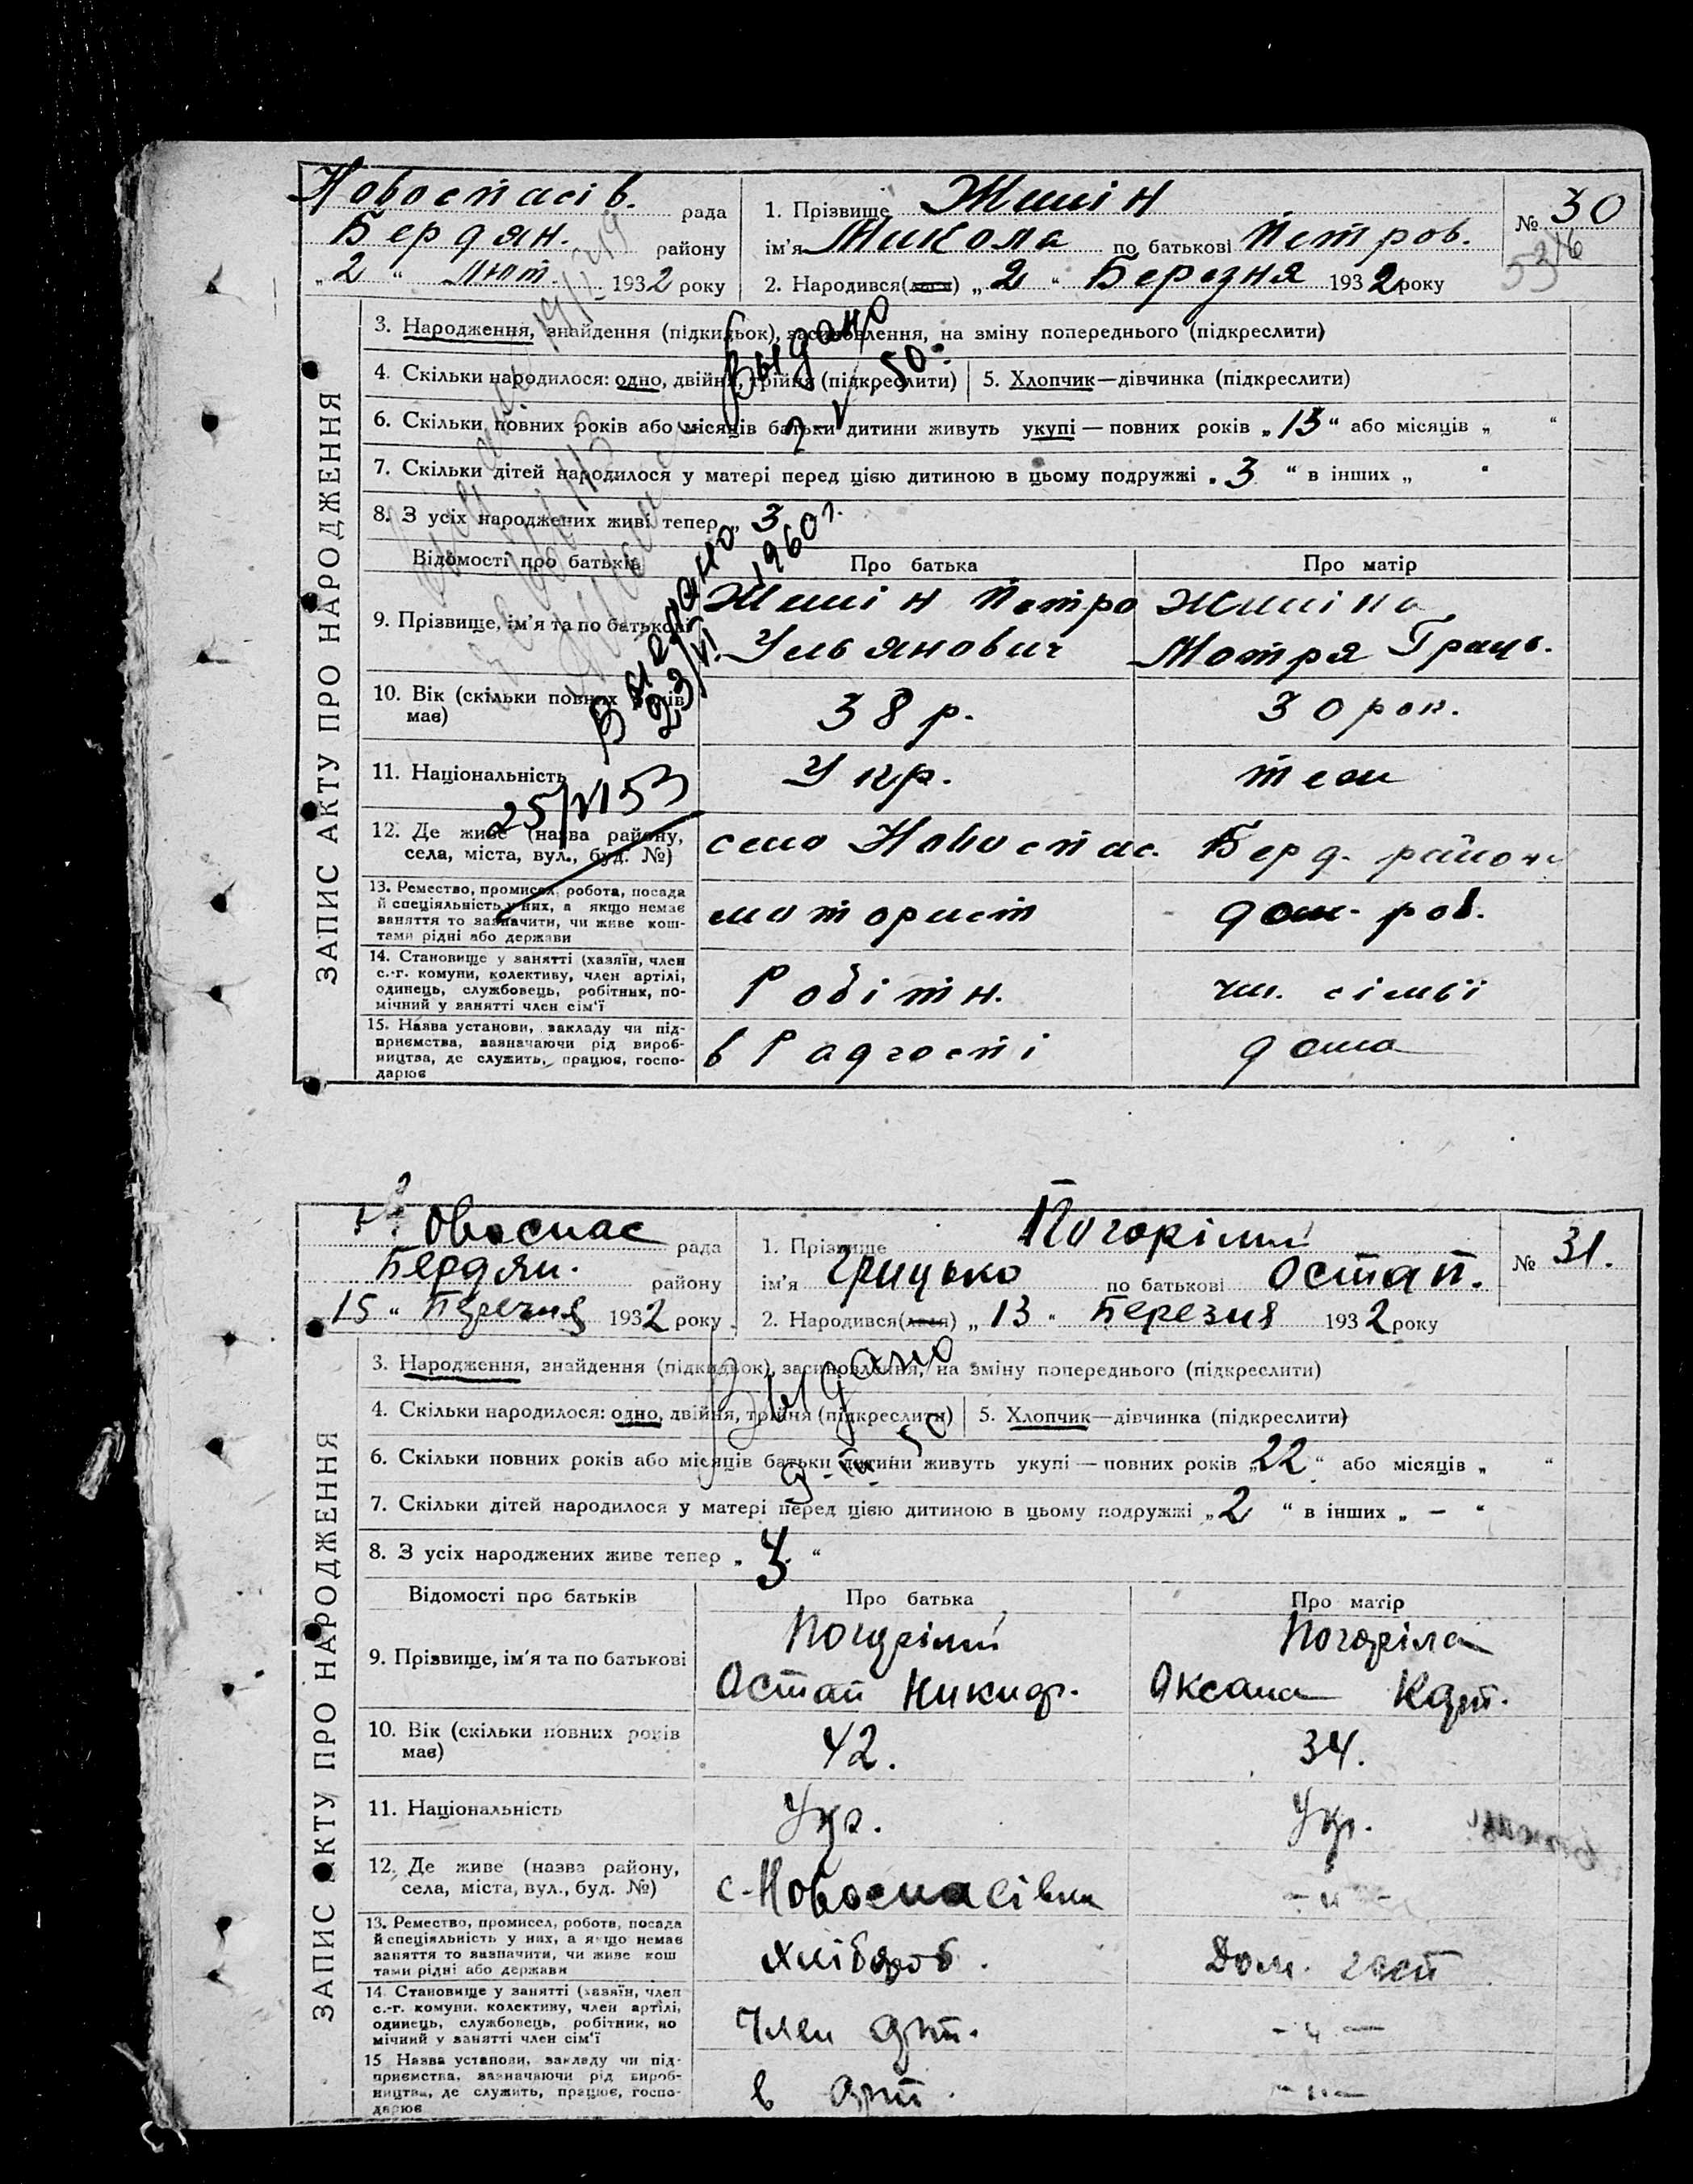 Новоспасів. рада
Бердян. району
„2“ Лют. 1932 року
1. Прізвище Жишін
ім'я Микола по батькові Петров.
2. Народився(лася) „2“ Березня 1932 року
№ 30
ЗАПИС АКТУ ПРО НАРОДЖЕННЯ
3. Народження, знайдення (підкидьок), засиновлення, на зміну попереднього (підкреслити)
4. Скільки народилося: одно, двійня, трійня (підкреслити)
5. Хлопчик—дівчинка (підкреслити)
6. Скільки повних років або місяців батьки дитини живуть укупі — повних років „13“ або місяців „ “
7. Скільки дітей народилося у матері перед цією дитиною в цьому подружжі „3 “ в інших „ “
8. З усіх народжених живі тепер „ 3
Выдано
50г.
Выдано
23/VI 1960 г.
25/VI 53
Відомості про батьків
Про батька
Про матір
9. Прізвище, ім'я та по батькові
Жишін Петро
Ульянович
Жишіна
Мотря Гриць.
10. Вік (скільки повних років має)
38 р.
30 рок.
11. Національність
Укр.
теж
12. Де живе (назва району,
села, міста, вул., буд. №)
село Новоспас. Берд. району
13. Ремество, промисел, робота, посада
й спеціяльність у них, а якщо немає
заняття то зазначити, чи живе кош-
тами рідні або держави
моторист
дом. роб.
14. Становище у занятті (хазяїн, член
с.-г. комуни, колективу, член артілі,
одинець, службовець, робітник, по-
мічний у занятті член сім'ї
Робітн.
чл. сімьї
15. Назва установи, закладу чи під-
приємства, зазначаючи рід вироб-
ництва, де служить, працює, госпо-
дарює
в Радгоспі
дома
Новоспас рада
Бердян. району
„15“ Березня 1932 року
1. Прізвище Погорілий
ім'я Грицько по батькові Остап.
2. Народився(лася) „13“ Березня 1932 року
№ 31.
ЗАПИС АКТУ ПРО НАРОДЖЕННЯ
3. Народження, знайдення (підкидьок), засиновлення, на зміну попереднього (підкреслити)
4. Скільки народилося: одно, двійня, трійня (підкреслити)
5. Хлопчик—дівчинка (підкреслити)
6. Скільки повних років або місяців батьки дитини живуть укупі — повних років „22“ або місяців „ “
7. Скільки дітей народилося у матері перед цією дитиною в цьому подружжі „2 “ в інших „ – “
8. З усіх народжених живе тепер „ 3 “
Выдано
Відомості про батьків
Про батька
Про матір
9. Прізвище, ім'я та по батькові
Погорілий
Остап Никиф.
Погоріла
Оксана Карп.
10. Вік (скільки повних років має)
42.
34.
11. Національність
Укр.
Укр.
12. Де живе (назва району,
села, міста, вул., буд. №)
с. Новоспасівка
-"-
13. Ремество, промисел, робота, посада
й спеціяльність у них, а якщо немає
заняття то зазначити, чи живе кош
тами рідні або держави
хлібороб.
Дом. госп
14 Становище у занятті (хазяїн, член
с.-г. комуни, колективу, член артілі,
одинець, службовець, робітник, по
мічний у занятті член сім'ї
Член арт.
-"-
15 Назва установи, закладу чи під-
приємства, зазначаючи рід вироб-
ництва, де служить, працює, госпо-
дарює
в арт.
-"-